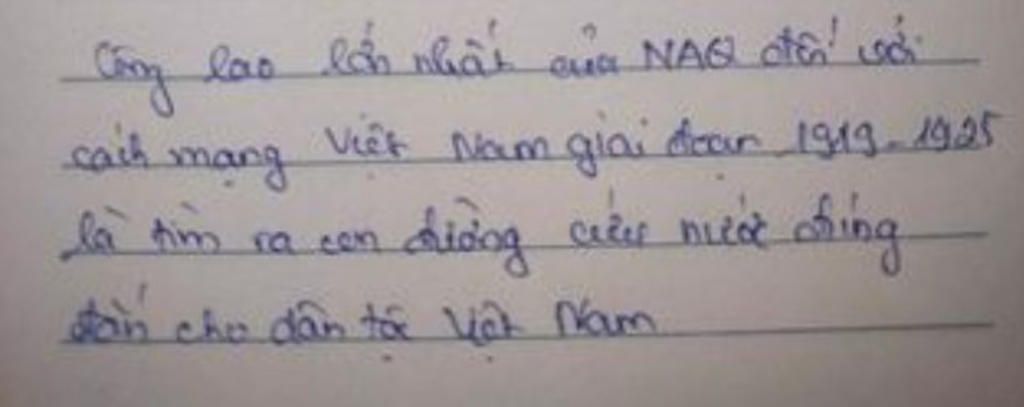 Công lao lớn nhất của NAQ đối với
cách mạng Việt Nam giai đoạn 1919-1925
là tìm ra con đường cứu nước đúng
đắn cho dân tộc Việt Nam